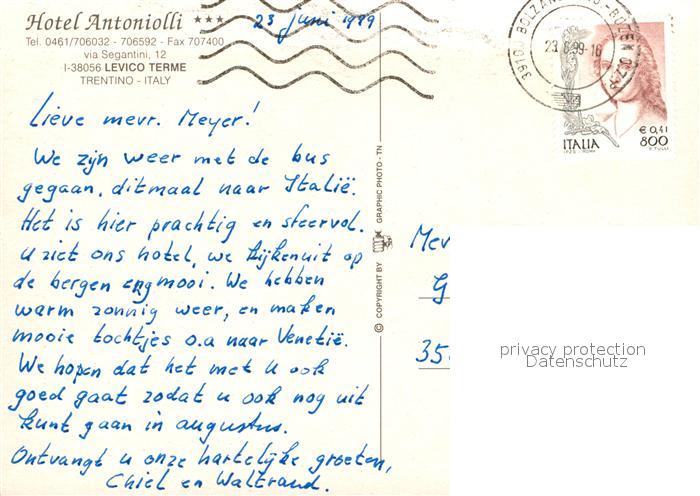 Hotel Antoniolli ***
Tel. 0461/706032 - 706592 - Fax 707400
via Segantini, 12
I-38056 LEVICO TERME
TRENTINO - ITALY
23 juni 1999
Lieve mevr. Meyer!
We zijn weer met de bus
gegaan, ditmaal naar Italië.
Het is hier prachtig en sfeervol.
U ziet ons hotel, we kijken uit op
de bergen erg mooi. We hebben
warm zonnig weer, en maken
mooie tochtjes o.a naar Venetië.
We hopen dat het met U ook
goed gaat zodat u ook nog uit
kunt gaan in augustus.
Ontvangt u onze hartelijke groeten,
Chiel en Waltraud.
© COPYRIGHT BY GRAPHIC PHOTO - TN
39100 BOLZANO
23.6.99-16
ITALIA
€ 0,41
800
Mev
G
35
privacy protection
Datenschutz